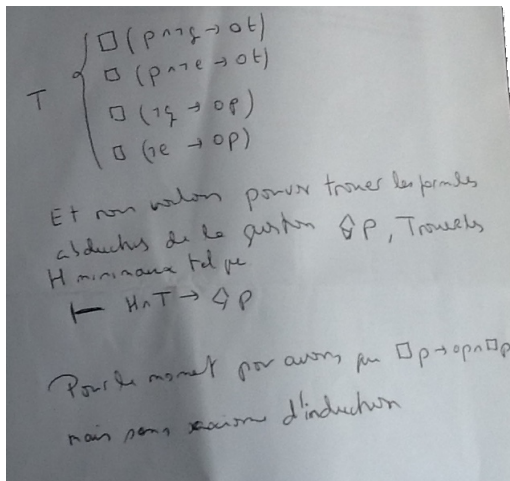 □ (p ∧ ¬q → ot)
□ (p ∧ ¬e → ot)
T
□ (¬q → op)
□ (¬e → op)
Et nous voulons pouvoir trouver les formules
abductives de la question ◊p, Trouver les
H minimaux tel que
⊢ H ∧ T → ◊p
Pour le moment nous avons que □p → op ∧ □p
mais sans axiome d'induction